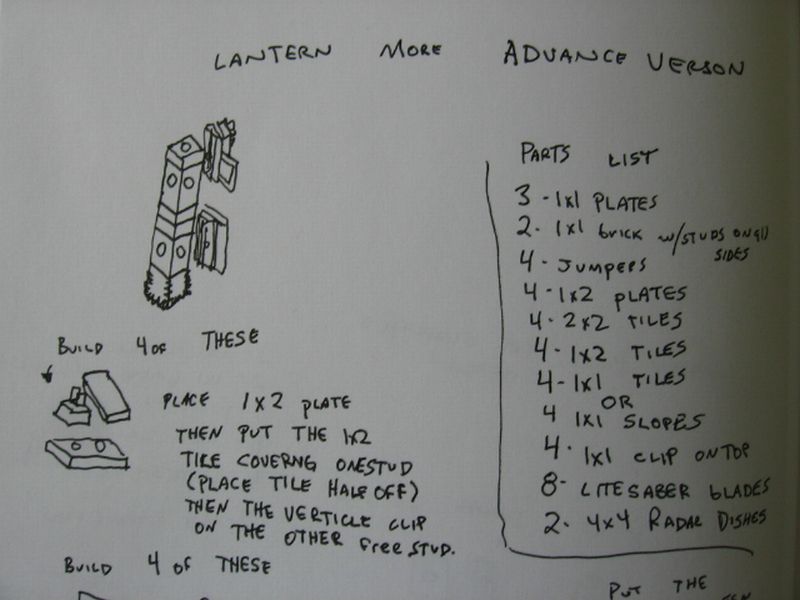 LANTERN MORE ADVANCE VERSON
PARTS LIST
3 - 1x1 PLATES
2 - 1x1 brick w/STUDS ON(4) SIDES
4 - JUMPERS
4 - 1x2 PLATES
4 - 2x2 TILES
4 - 1x2 TILES
4 - 1x1 TILES
OR
4 1x1 SLOPES
4 - 1x1 CLIP ON TOP
8 - LITESABER BLADES
2 - 4x4 RADAR DISHES
BUILD 4 OF THESE
PLACE 1x2 PLATE
THEN PUT THE 1x2
TILE COVERNG ONESTUD
(PLACE TILE HALF OFF)
THEN THE VERTICLE CLIP
ON THE OTHER FREE STUD.
BUILD 4 OF THESE
PUT THE